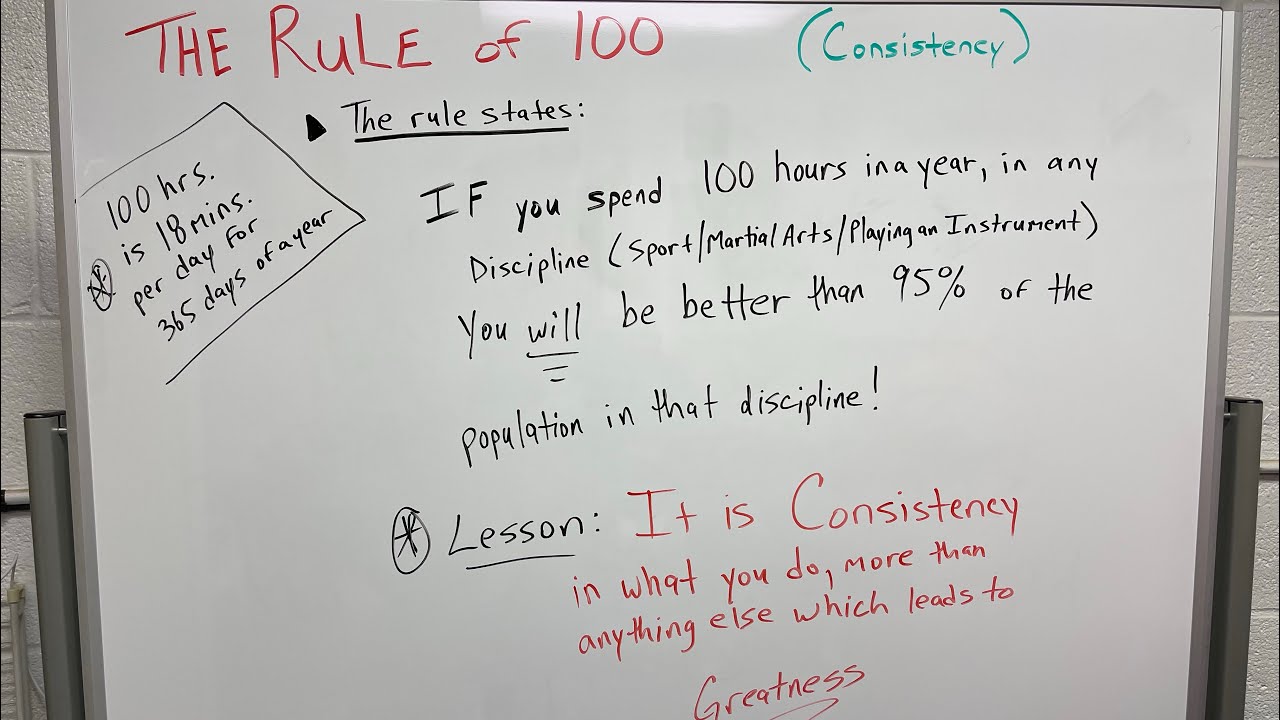 THE RULE of 100 (Consistency)
The rule states:
100 hrs.
is 18 mins.
per day for
365 days of a year
IF you spend 100 hours in a year, in any
Discipline (Sport/Martial Arts/Playing an Instrument)
You will be better than 95% of the
population in that discipline!
Lesson: It is Consistency
in what you do, more than
anything else which leads to
Greatness